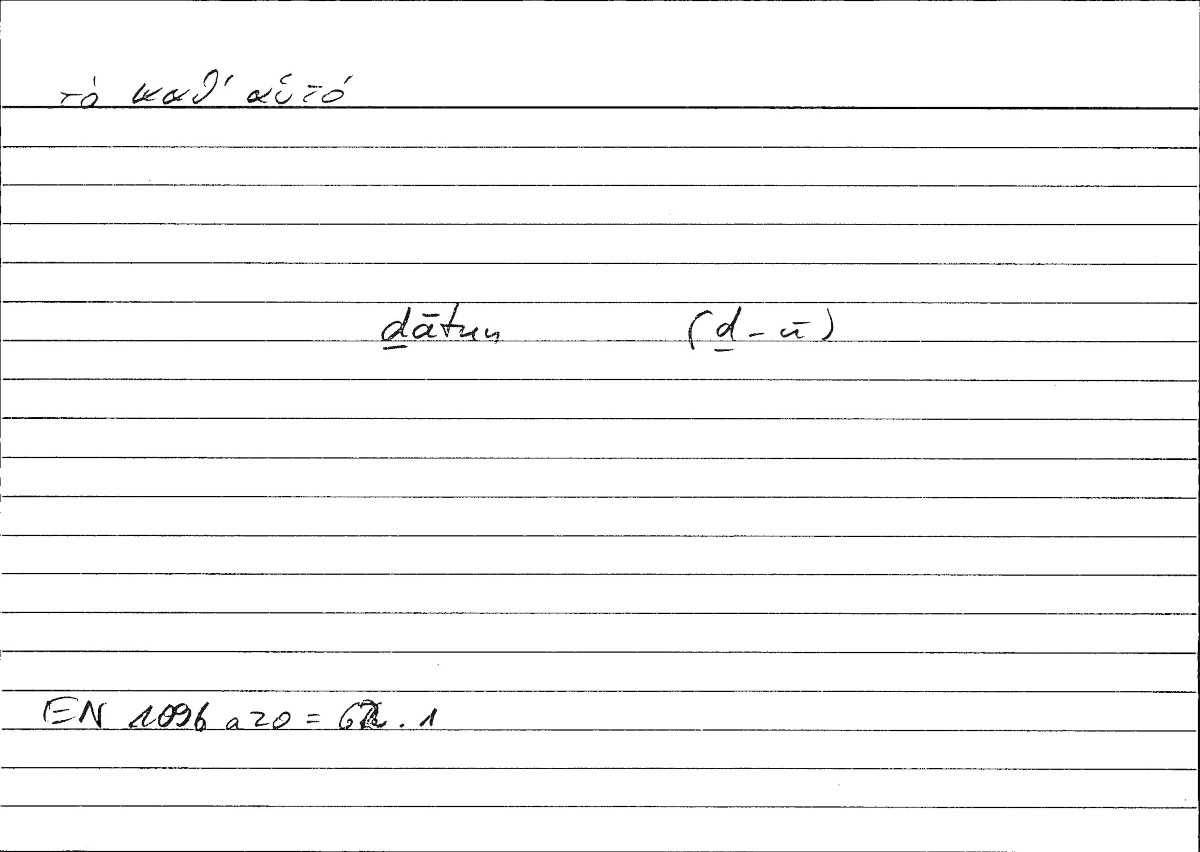 τὸ καθ' αὑτό
ḏātun (ḏ-ū)
EN 1096 a20 = .1